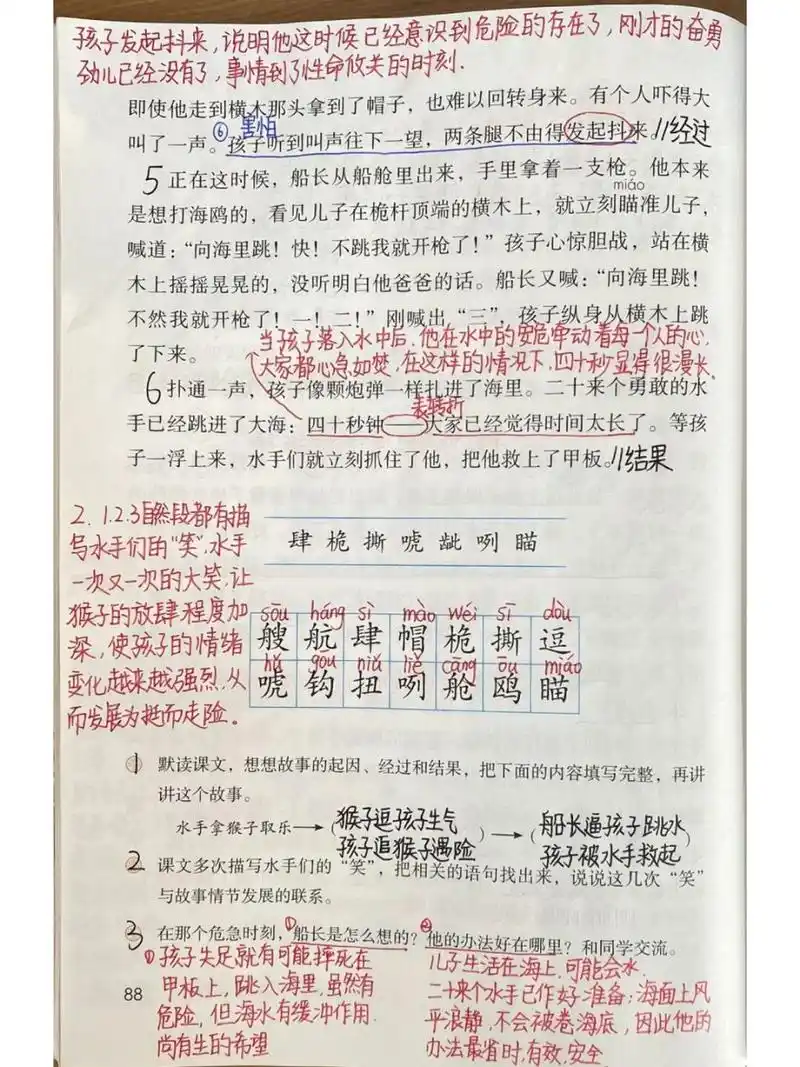 孩子发起抖来，说明他这时候已经意识到危险的存在了，刚才的奋勇
劲儿已经没有了，事情到了性命攸关的时刻.
即使他走到横木那头拿到了帽子，也难以回转身来。有个人吓得大
⑥害怕
叫了一声。孩子听到叫声往下一望，两条腿不由得发起抖来。//经过
5 正在这时候，船长从船舱里出来，手里拿着一支枪。他本来
miáo
是想打海鸥的，看见儿子在桅杆顶端的横木上，就立刻瞄准儿子，
喊道：“向海里跳！快！不跳我就开枪了！”孩子心惊胆战，站在横
木上摇摇晃晃的，没听明白他爸爸的话。船长又喊：“向海里跳！
不然我就开枪了！一！二！”刚喊出“三”，孩子纵身从横木上跳
了下来。
当孩子落入水中后，他在水中的安危牵动着每一个人的心.
大家都心急如焚，在这样的情况下，四十秒显得很漫长.
6 扑通一声，孩子像颗炮弹一样扎进了海里。二十来个勇敢的水
表转折
手已经跳进了大海：四十秒钟——大家已经觉得时间太长了。等孩
子一浮上来，水手们就立刻抓住了他，把他救上了甲板。//结果
2. 1.2.3自然段都有描
写水手们的“笑”，水手
一次又一次的大笑，让
猴子的放肆程度加
深，使孩子的情绪
变化越来越强烈，从
而发展为挺而走险。
肆 桅 撕 唬 龇 咧 瞄
sōu háng sì mào wéi sī dòu
艘 航 肆 帽 桅 撕 逗
hǔ gōu niǔ liě cāng ōu miáo
唬 钩 扭 咧 舱 鸥 瞄
1 默读课文，想想故事的起因、经过和结果，把下面的内容填写完整，再讲
讲这个故事。
水手拿猴子取乐→（猴子逗孩子生气 孩子追猴子遇险）→（船长逼孩子跳水 孩子被水手救起）
2 课文多次描写水手们的“笑”，把相关的语句找出来，说说这几次“笑”
与故事情节发展的联系。
3 在那个危急时刻，①船长是怎么想的？②他的办法好在哪里？和同学交流。
①孩子失足就有可能摔死在
甲板上，跳入海里，虽然有
危险，但海水有缓冲作用.
尚有生的希望
儿子生活在海上，可能会水.
二十来个水手已作好准备；海面上风
平浪静，不会被卷海底，因此他的
办法最省时，有效，安全
88